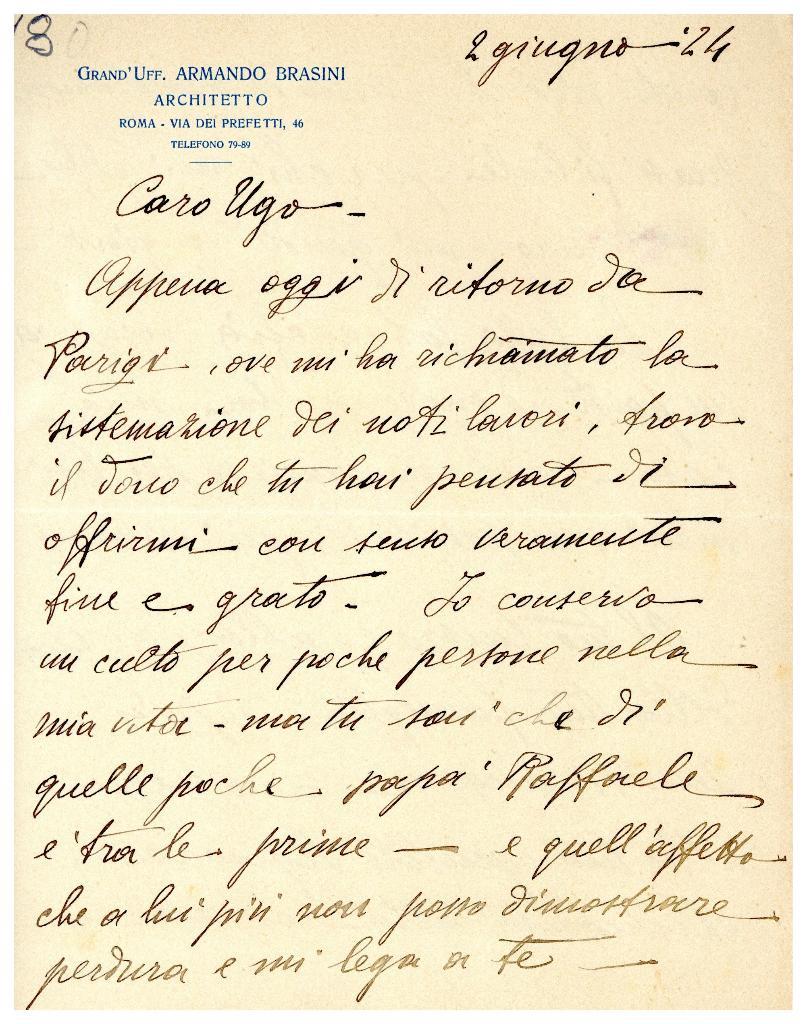 80
2 giugno '24
GRAND'UFF. ARMANDO BRASINI
ARCHITETTO
ROMA - VIA DEI PREFETTI, 46
TELEFONO 79-89
Caro Ugo -
Appena oggi di ritorno da
Parigi, ove mi ha richiamato la
sistemazione dei noti lavori, trovo
il dono che tu hai pensato di
offrirmi con senso veramente
fine e grato - Io conservo
un culto per poche persone nella
mia vita - ma tu sai che di
quelle poche papa' Raffaele
e' tra le prime — e quell'affetto
che a lui più non posso dimostrare
perdura e mi lega a te —